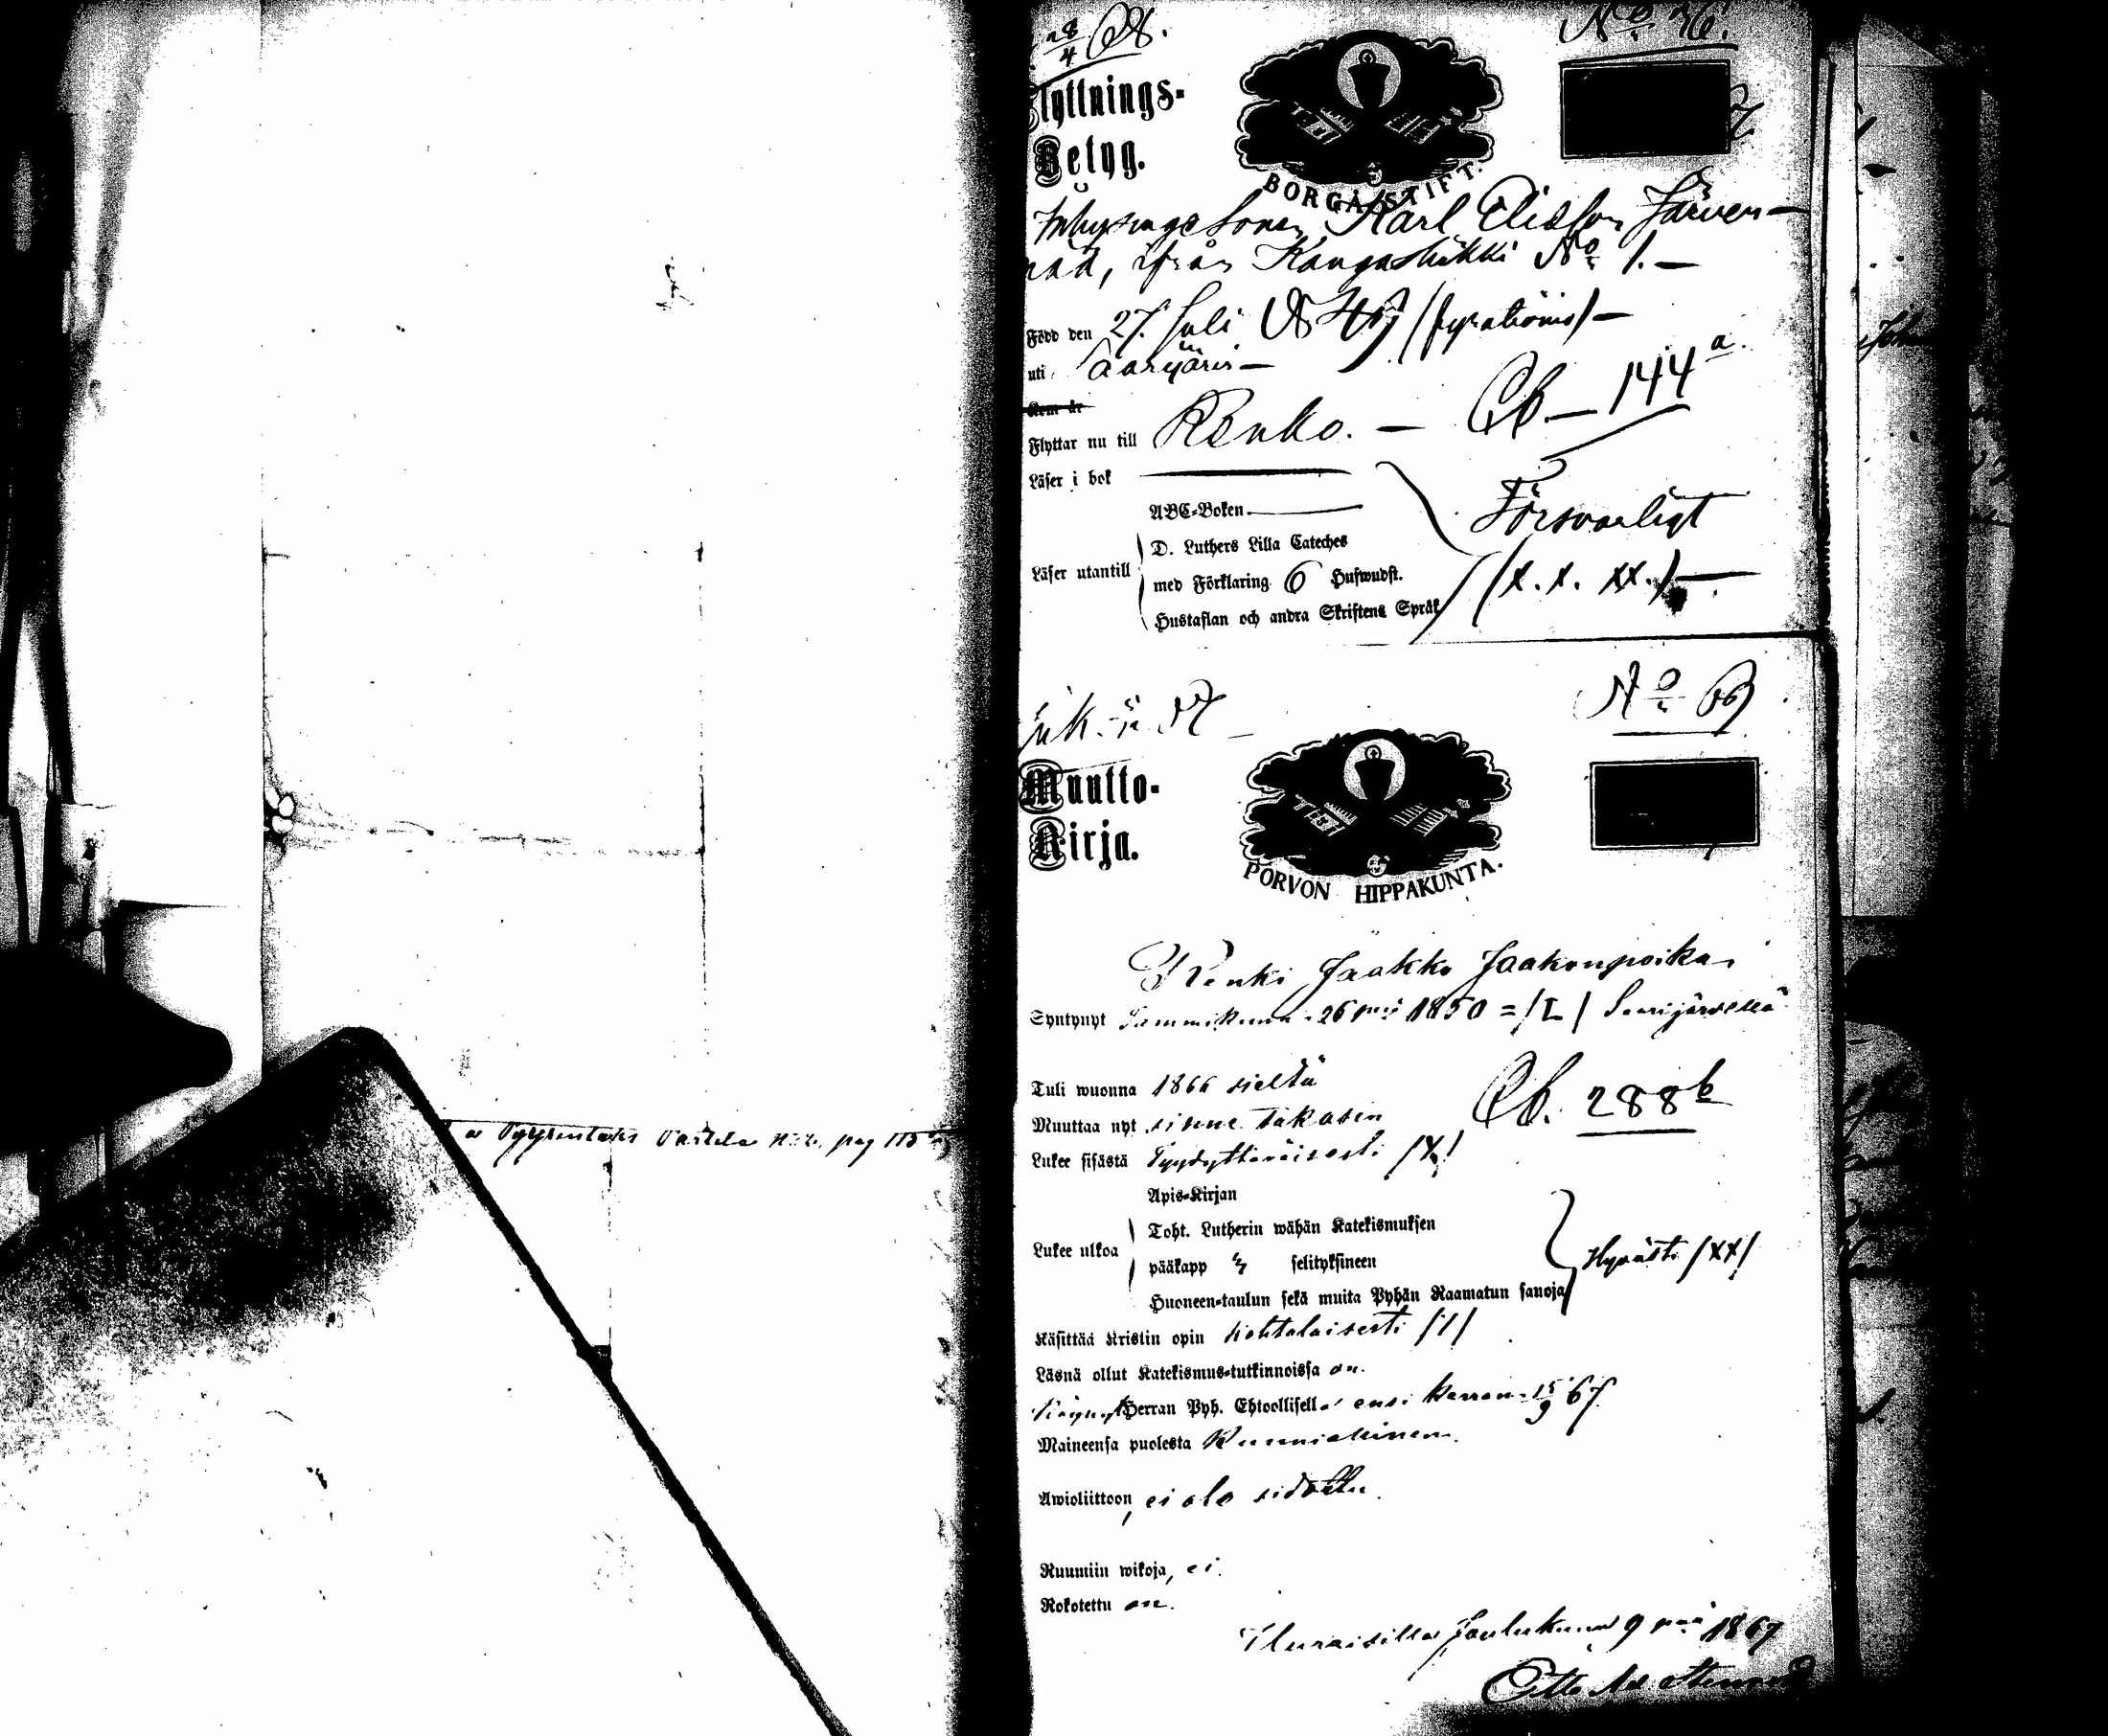 a pag 115
28/4 68.
No 76.
Flyttnings-
Betyg.
BORGÅ STIFT.
Inhysinge Sonen Karl Elisson Järven-
pää, ifrån Kangashäkki No 1.—
Född den 27. Juli 1849 /fyrationio/—
uti Saarijärvi—
Kom år
Flyttar nu till Renko. — Cb— 144 a.
Läser i bok
ABC-Boken
Försvarligt
Läser utantill
D. Luthers Lilla Cateches
med Förklaring 6 Hufwudst.
/x. x. xx./—
Hustaflan och andra Skriftens Språk
No 69
Muutto-
Kirja.
PORVON HIPPAKUNTA.
Renki Jaakko Jaakonpoika
Syntynyt Tammikuun 26 p:nä 1850 = /L/ Saarijärvellä
Tuli wuonna 1866 sieltä
Muuttaa nyt sinne takasin Cb. 288 b
Lukee sisästä Tyydyttäväisesti /X/
Apis-Kirjan
Lukee ulkoa
Toht. Lutherin wähän Katekismuksen
pääkapp selityksineen
Hyvästi /XX/
Huoneen-taulun sekä muita Pyhän Raamatun sanoja
Käsittää Kristin opin kohtalaisesti /1/
Läsnä ollut Katekismus-tutkinnoissa on.
Käynyt Herran Pyh. Ehtoollisella ensi kerran 15/9 67.
Maineensa puolesta Kunniallinen.
Awioliittoon, ei ole sidottu.
Ruumiin wikoja, ei.
Rokotettu on.
Uuraisilla Joulukuun 9 p:nä 1867
Otto